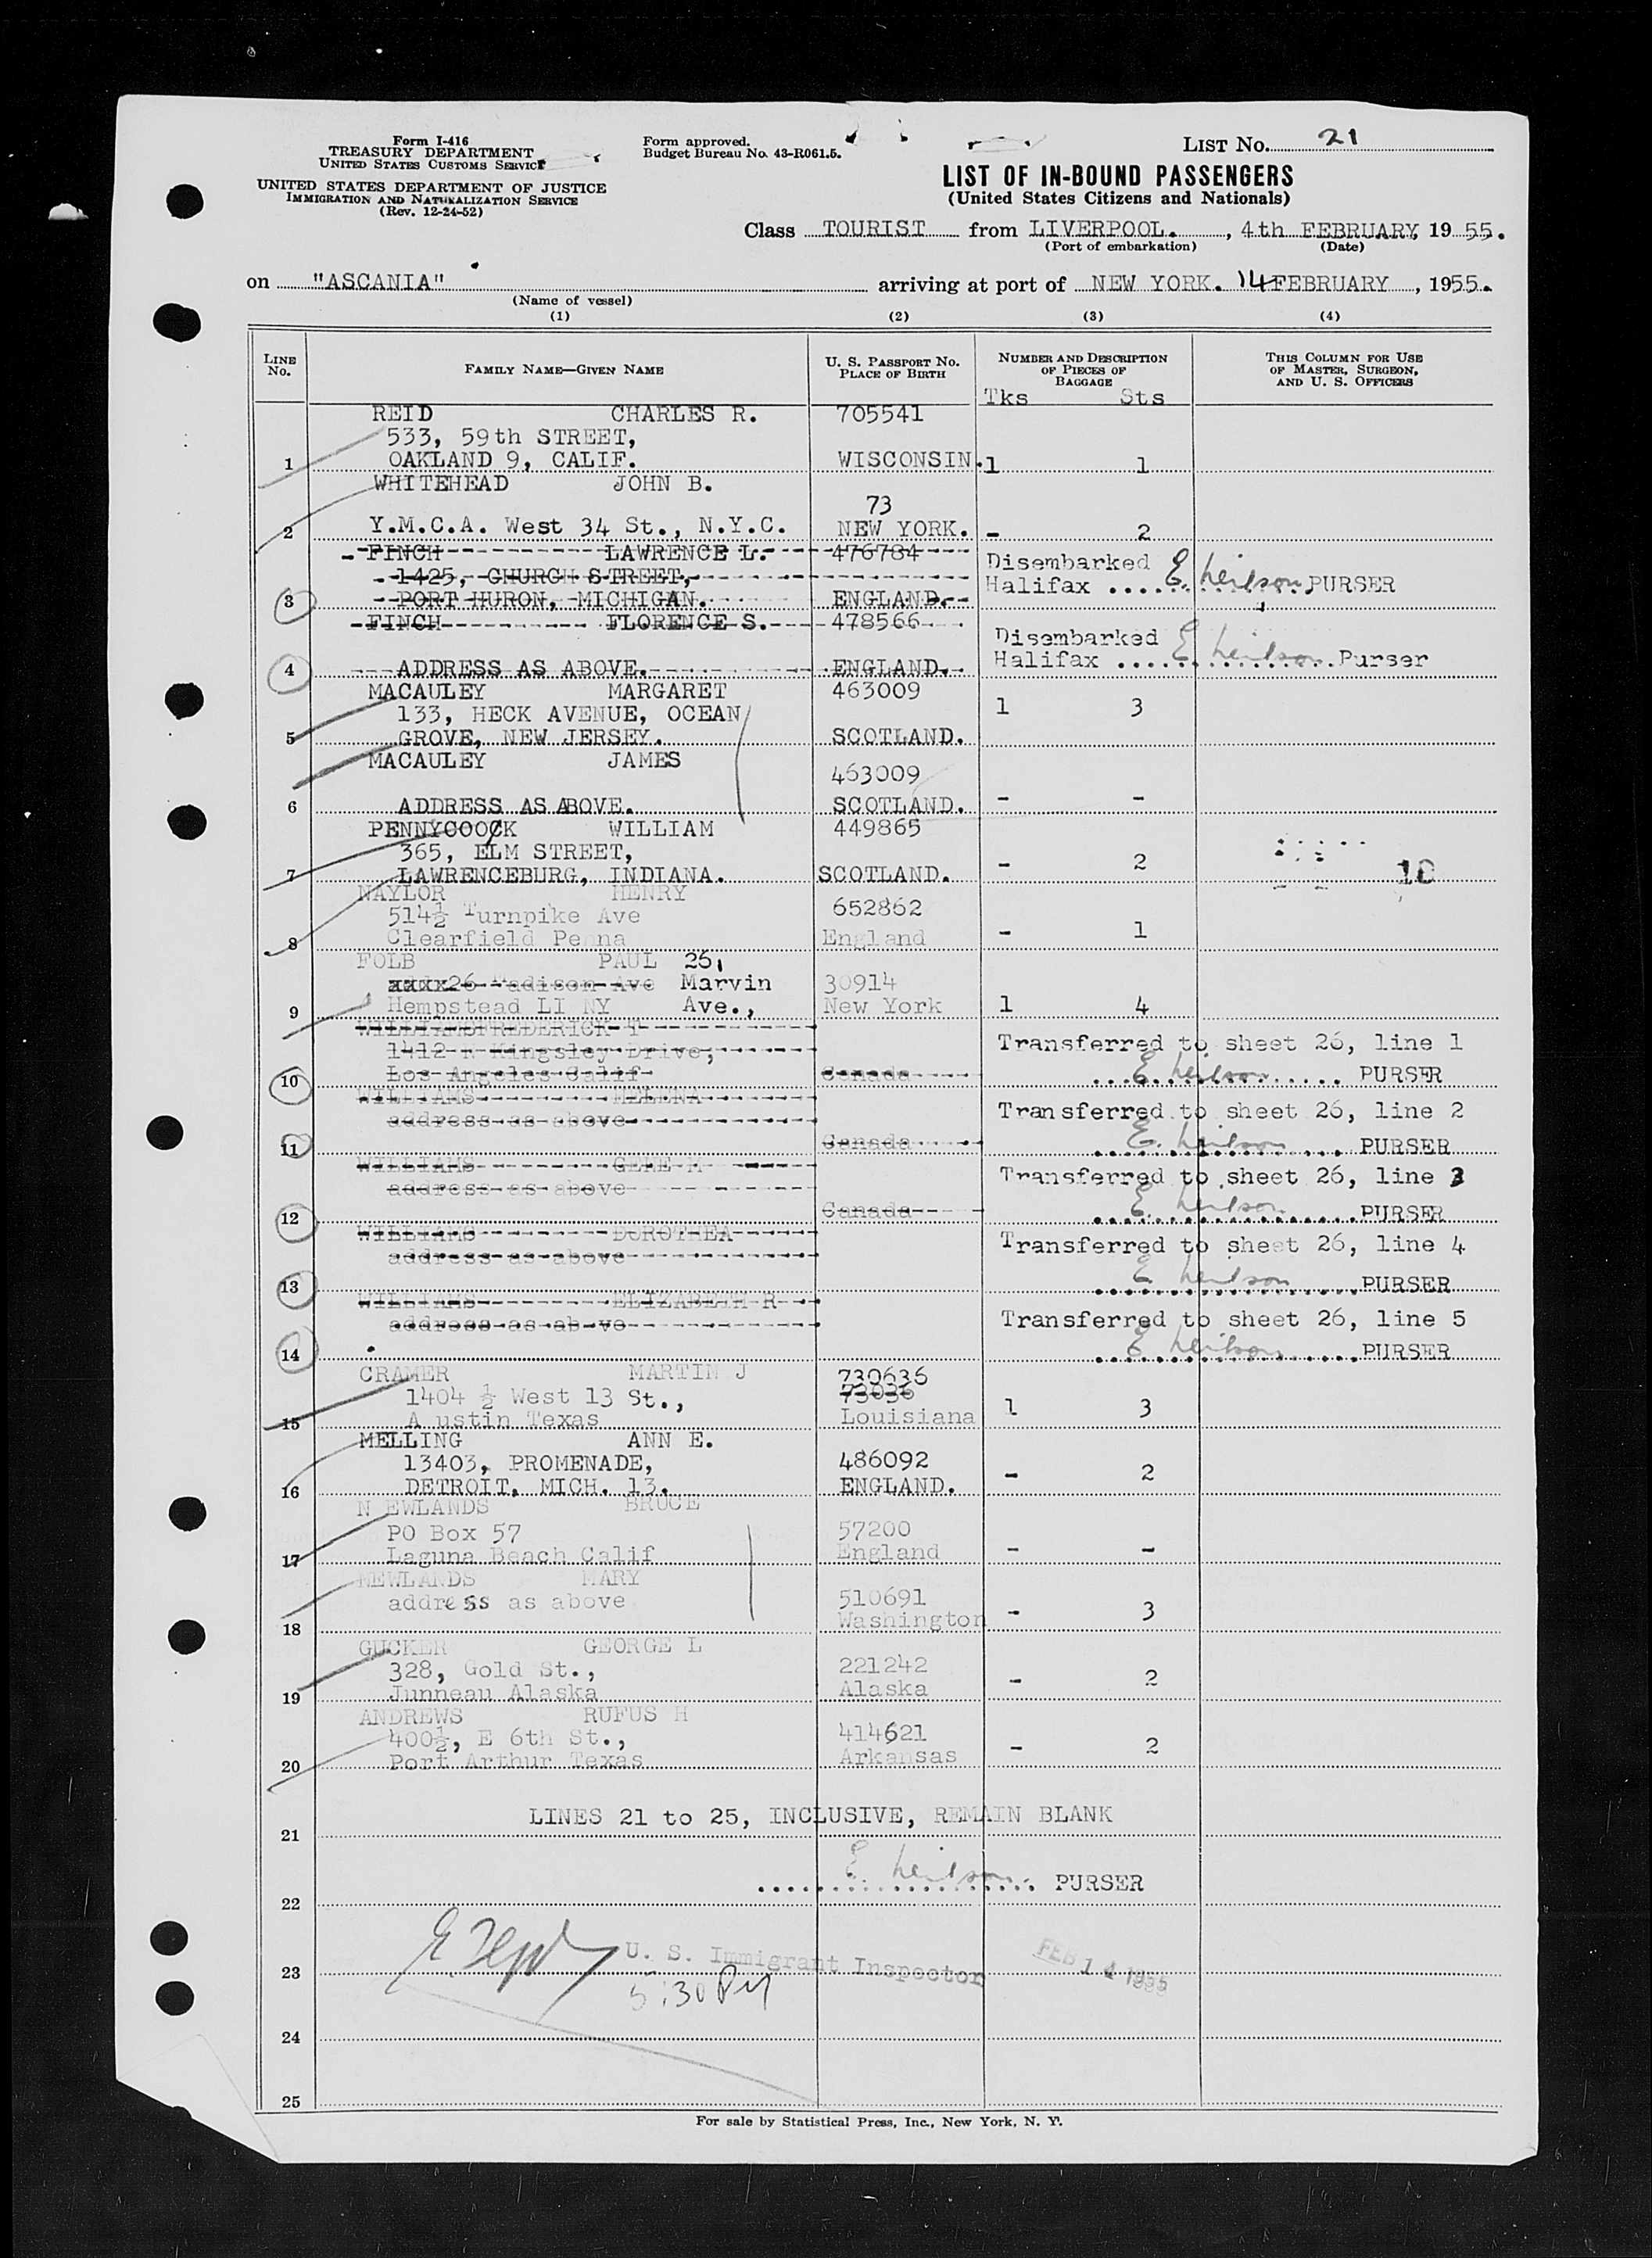 Form I-416
TREASURY DEPARTMENT
UNITED STATES CUSTOMS SERVICE
UNITED STATES DEPARTMENT OF JUSTICE
IMMIGRATION AND NATURALIZATION SERVICE
(Rev. 12-24-52)
Form approved.
Budget Bureau No. 43-R061.5.
LIST No. 21
LIST OF IN-BOUND PASSENGERS
(United States Citizens and Nationals)
Class TOURIST from LIVERPOOL. , 4th FEBRUARY, 19 55.
(Port of embarkation) (Date)
on "ASCANIA" arriving at port of NEW YORK. 14 FEBRUARY , 1955.
(Name of vessel)
(1) (2) (3) (4)
LINE No. FAMILY NAME—GIVEN NAME U. S. PASSPORT No. PLACE OF BIRTH NUMBER AND DESCRIPTION OF PIECES OF BAGGAGE THIS COLUMN FOR USE OF MASTER, SURGEON, AND U. S. OFFICERS
Tks Sts
REID CHARLES R. 705541
533, 59th STREET,
1 OAKLAND 9, CALIF. WISCONSIN. 1 1
WHITEHEAD JOHN B.
73
2 Y.M.C.A. West 34 St., N.Y.C. NEW YORK. - 2
FINCH LAWRENCE L. 476784 Disembarked
1425, CHURCH STREET, Halifax E. Neilson PURSER
3 PORT HURON, MICHIGAN. ENGLAND.
FINCH FLORENCE S. 478566 Disembarked
Halifax E Neilson Purser
4 ADDRESS AS ABOVE. ENGLAND.
MACAULEY MARGARET 463009
133, HECK AVENUE, OCEAN 1 3
5 GROVE, NEW JERSEY. SCOTLAND.
MACAULEY JAMES
463009
6 ADDRESS AS ABOVE. SCOTLAND. - -
PENNYCOOCK WILLIAM 449865
365, ELM STREET, - 2 10
7 LAWRENCEBURG, INDIANA. SCOTLAND.
NAYLOR HENRY
514½ Turnpike Ave 652862
8 Clearfield Penna England - 1
FOLB PAUL 26,
xxxx26 Madison Ave Marvin 30914
9 Hempstead LI NY Ave., New York 1 4
WILLIAMS FREDERICK T
1412 N Kingsley Drive, Transferred to sheet 26, line 1
10 Los Angeles Calif Canada E. Neilson PURSER
WILLIAMS HELENA
address as above Transferred to sheet 26, line 2
11 Canada E. Neilson PURSER
WILLIAMS GENE M
address as above Transferred to sheet 26, line 3
12 Canada E. Neilson PURSER
WILLIAMS DOROTHEA
address as above Transferred to sheet 26, line 4
13 E Neilson PURSER
WILLIAMS ELIZABETH R
address as above Transferred to sheet 26, line 5
14 E Neilson PURSER
CRAMER MARTIN J 730636
1404 ½ West 13 St., 73036
15 A ustin Texas Louisiana 1 3
MELLING ANN E.
13403, PROMENADE, 486092
16 DETROIT, MICH. 13. ENGLAND. - 2
N EWLANDS BRUCE
PO Box 57 57200
17 Laguna Beach Calif England - -
NEWLANDS MARY
address as above 510691
18 Washington - 3
GUCKER GEORGE L
328, Gold St., 221242
19 Junneau Alaska Alaska - 2
ANDREWS RUFUS H
400½, E 6th St., 414621
20 Port Arthur Texas Arkansas - 2
LINES 21 to 25, INCLUSIVE, REMAIN BLANK
21
E. Neilson PURSER
22
U. S. Immigrant Inspector FEB 14 1955
23
5:30 PM
24
25
For sale by Statistical Press, Inc., New York, N. Y.